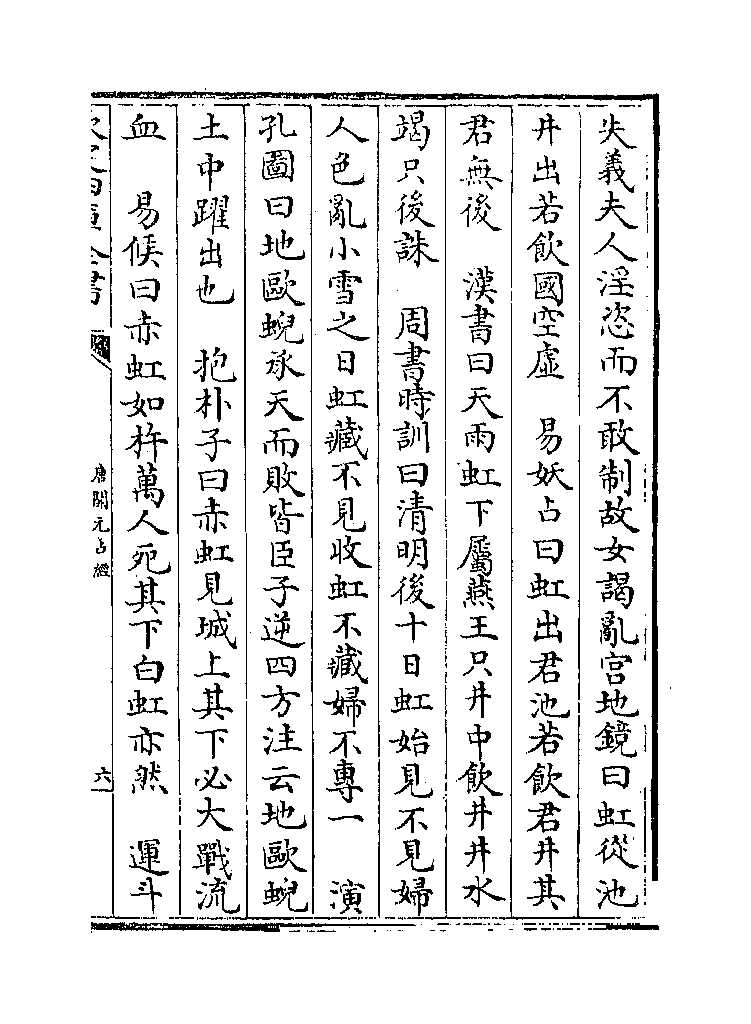 失義夫人淫恣而不敢制故女謁亂宫地鏡曰虹從池
井出若飲國空虛　易妖占曰虹出君池若飲君井其
君無後　漢書曰天雨虹下屬燕王只井中飲井井水
竭只後誅　周書時訓曰清明後十日虹始見不見婦
人色亂小雪之日虹藏不見收虹不藏婦不專一　演
孔圖曰地歐蜺承天而敗皆臣子逆四方注云地歐蜺
土中躍出也　抱朴子曰赤虹見城上其下必大戰流
血　易候曰赤虹如杵萬人死其下白虹亦然　運斗
欽定四庫全書
唐開元占經
六